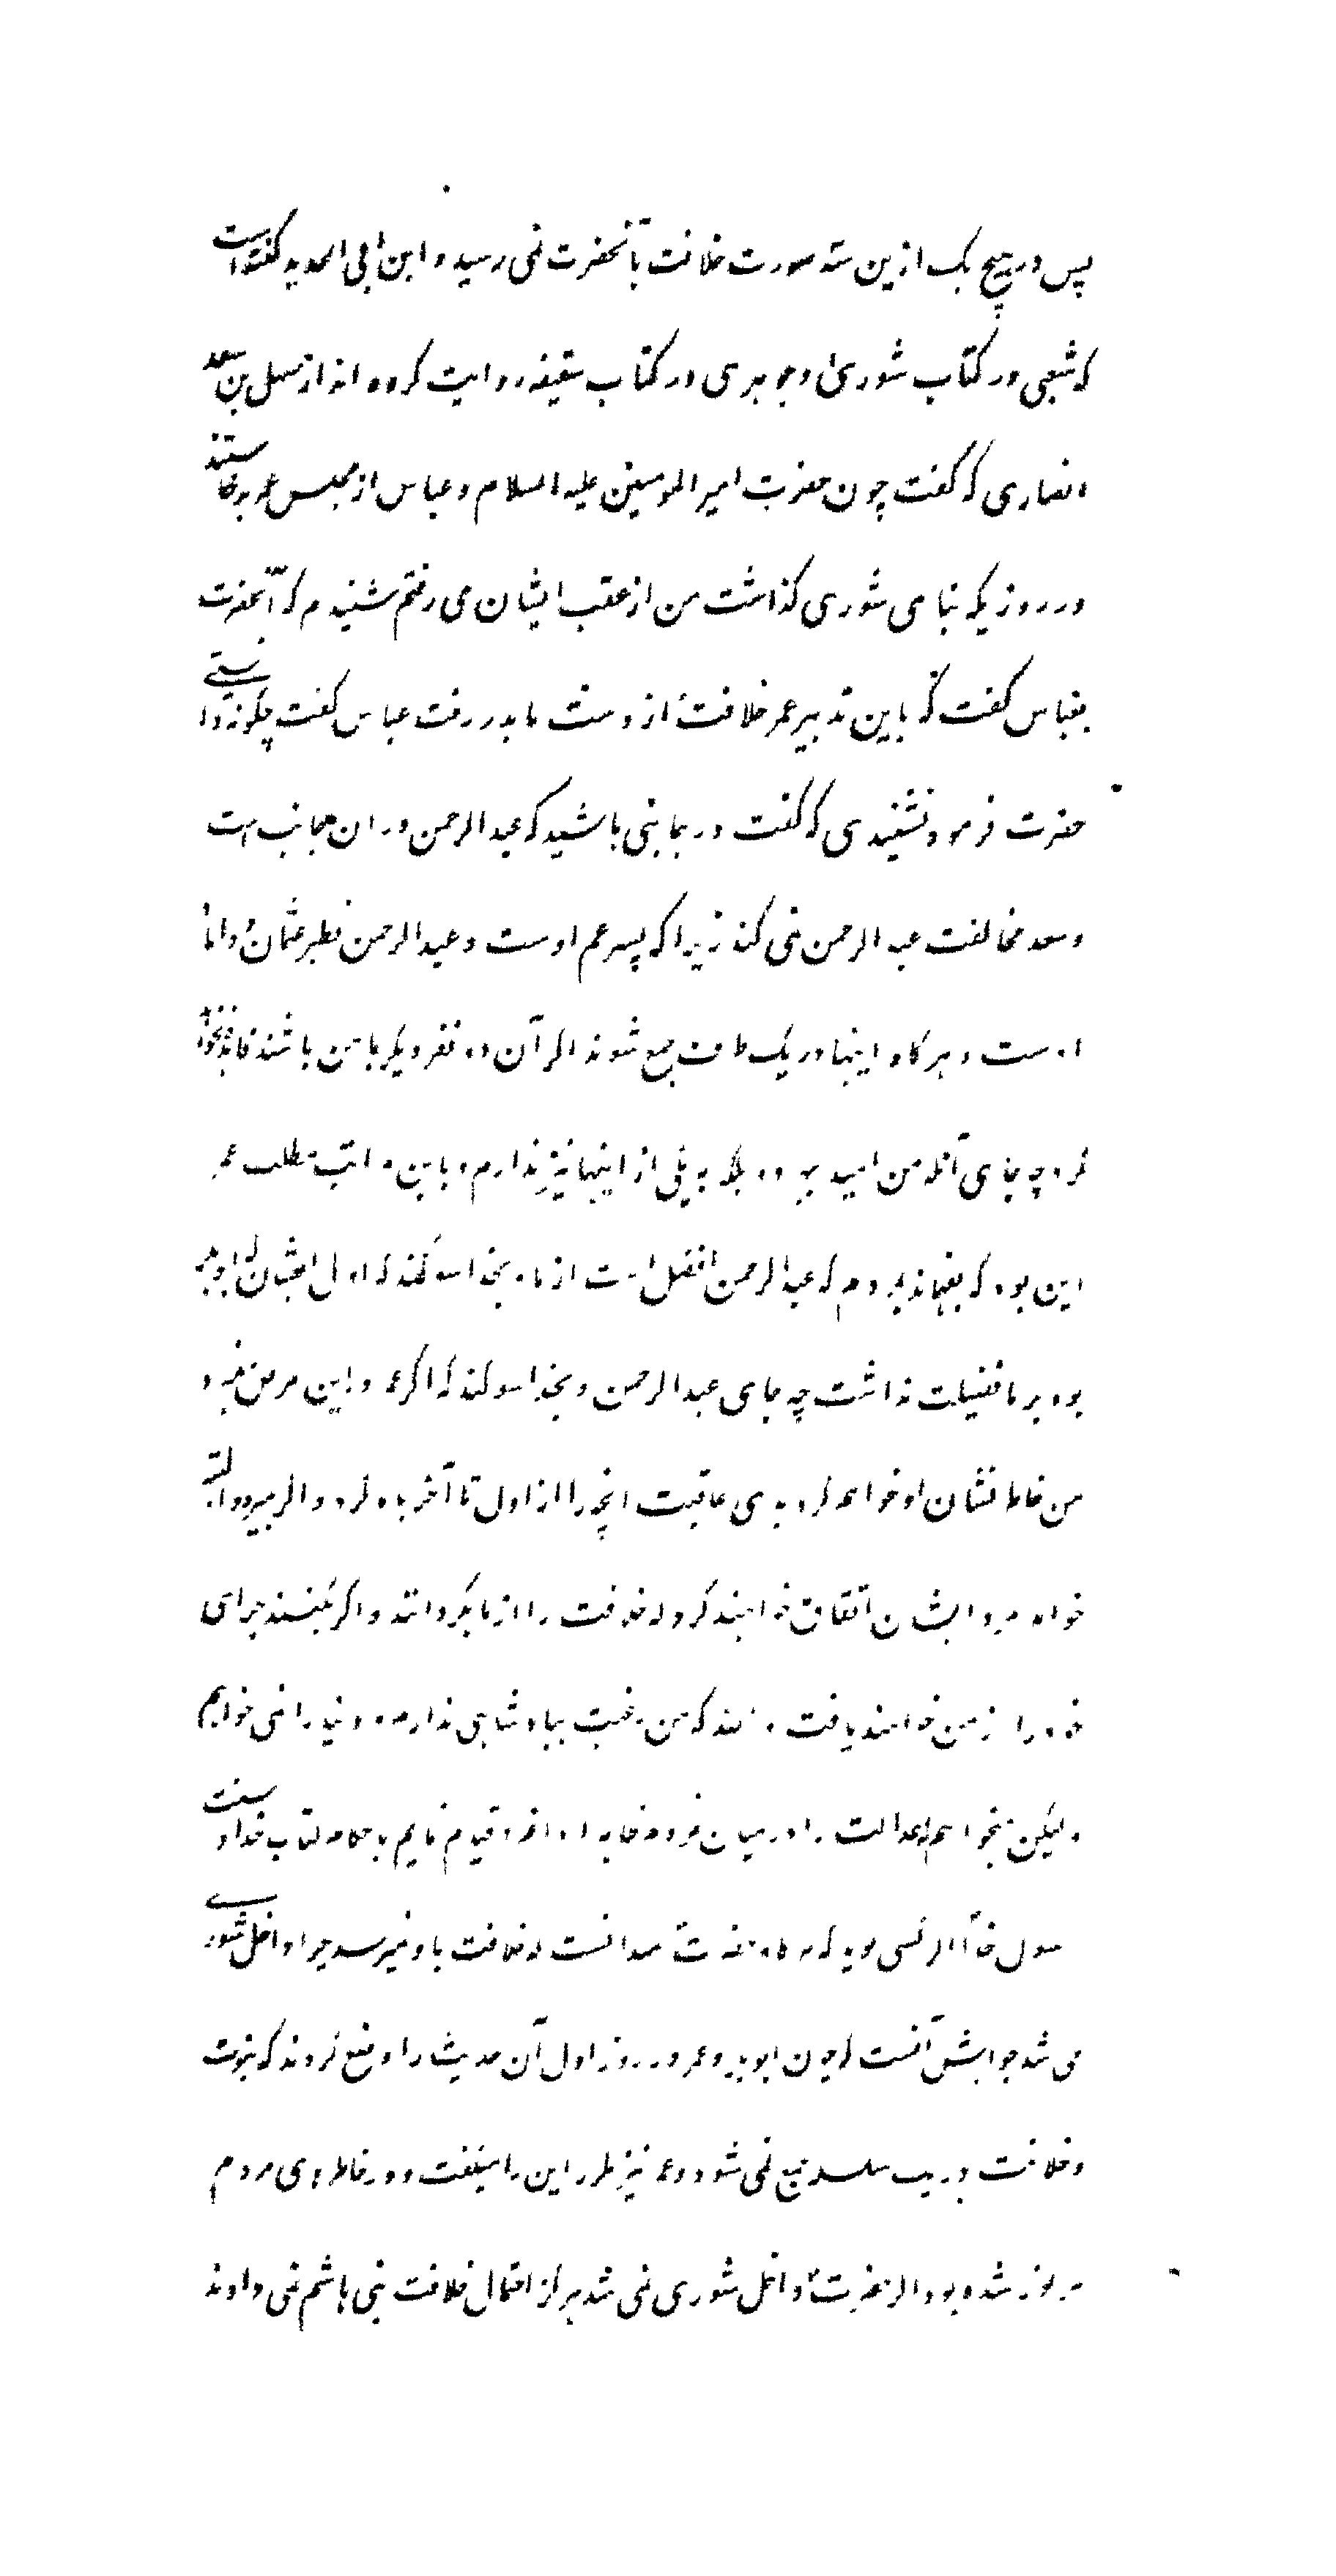 پس در هیچ یک ازین سه صورت خلافت بآنحضرت نمی رسید و ابن ابی الحدید گفته است
که شعبی در کتاب شوریٰ و جوهری در کتاب سقیفه روایت کرده اند از سهل بن سعد
انصاری که گفت چون حضرت امیر المومنین علیه السلام و عباس از مجلس عمر برخاستند
در روزیکه بنای شوری گذاشت من از عقب ایشان می رفتم شنیدم که آنحضرت
بعباس گفت که باین تدبیر عمر خلافت از دست ما بدر رفت عباس گفت چگونه دانستی
حضرت فرمود نشنیدی که گفت در جانبی باشید که عبد الرحمن در ان جانب است
و سعد مخالفت عبد الرحمن نمی کند زیرا که پسر عم اوست و عبد الرحمن نظیر عثمان و داماد
اوست و هرگاه اینها در یک طرف جمع شوند اگر آن دو نفر دیگر با من باشند فایده نخواهد
کرد چه جای آنکه من امید بهر دو بلکه به یکی از اینها نیز ندارم و باین مراتب مطلب عمر
این بود که بفهماند بمردم که عبد الرحمن افضل است از ما و بخدا سوگند که اول ایشان که ابوبکر
بود بر ما فضیلت نداشت چه جای عبد الرحمن و بخدا سوگند که اگر عمر از این مرض نمیرد
من خاطر نشان او خواهم کرد بدی عاقبت انچه را از اول تا آخر با ما کرد و اگر بمیرد و البته
خواهد مرد ایشان اتفاق خواهند کرد که خلافت را از ما بگردانند و اگر بکنند جزای
خود را از من خواهند یافت و که من رغبت بپادشاهی ندارم و دنیا را نمی خواهم
و لیکن میخواهم عدالت را در میان قیام نمایم باحکام کتاب خدا و سنت
رسول خدا اگر کسی گوید که هرگاه حضرت میدانست که خلافت باو نمیرسد چرا داخل شوری
می شد جوابش آنست که چون ابوبکر و عمر در روز اول آن حدیث را وضع کردند که نبوت
و خلافت در یک سلسله جمع نمی شود و عمر نیز مکرر این را میگفت و در خاطرهای مردم
مرکوز شده بود اگر حضرت داخل شوری نمی شد هرگز احتمال خلافت بنی هاشم نمی دادند